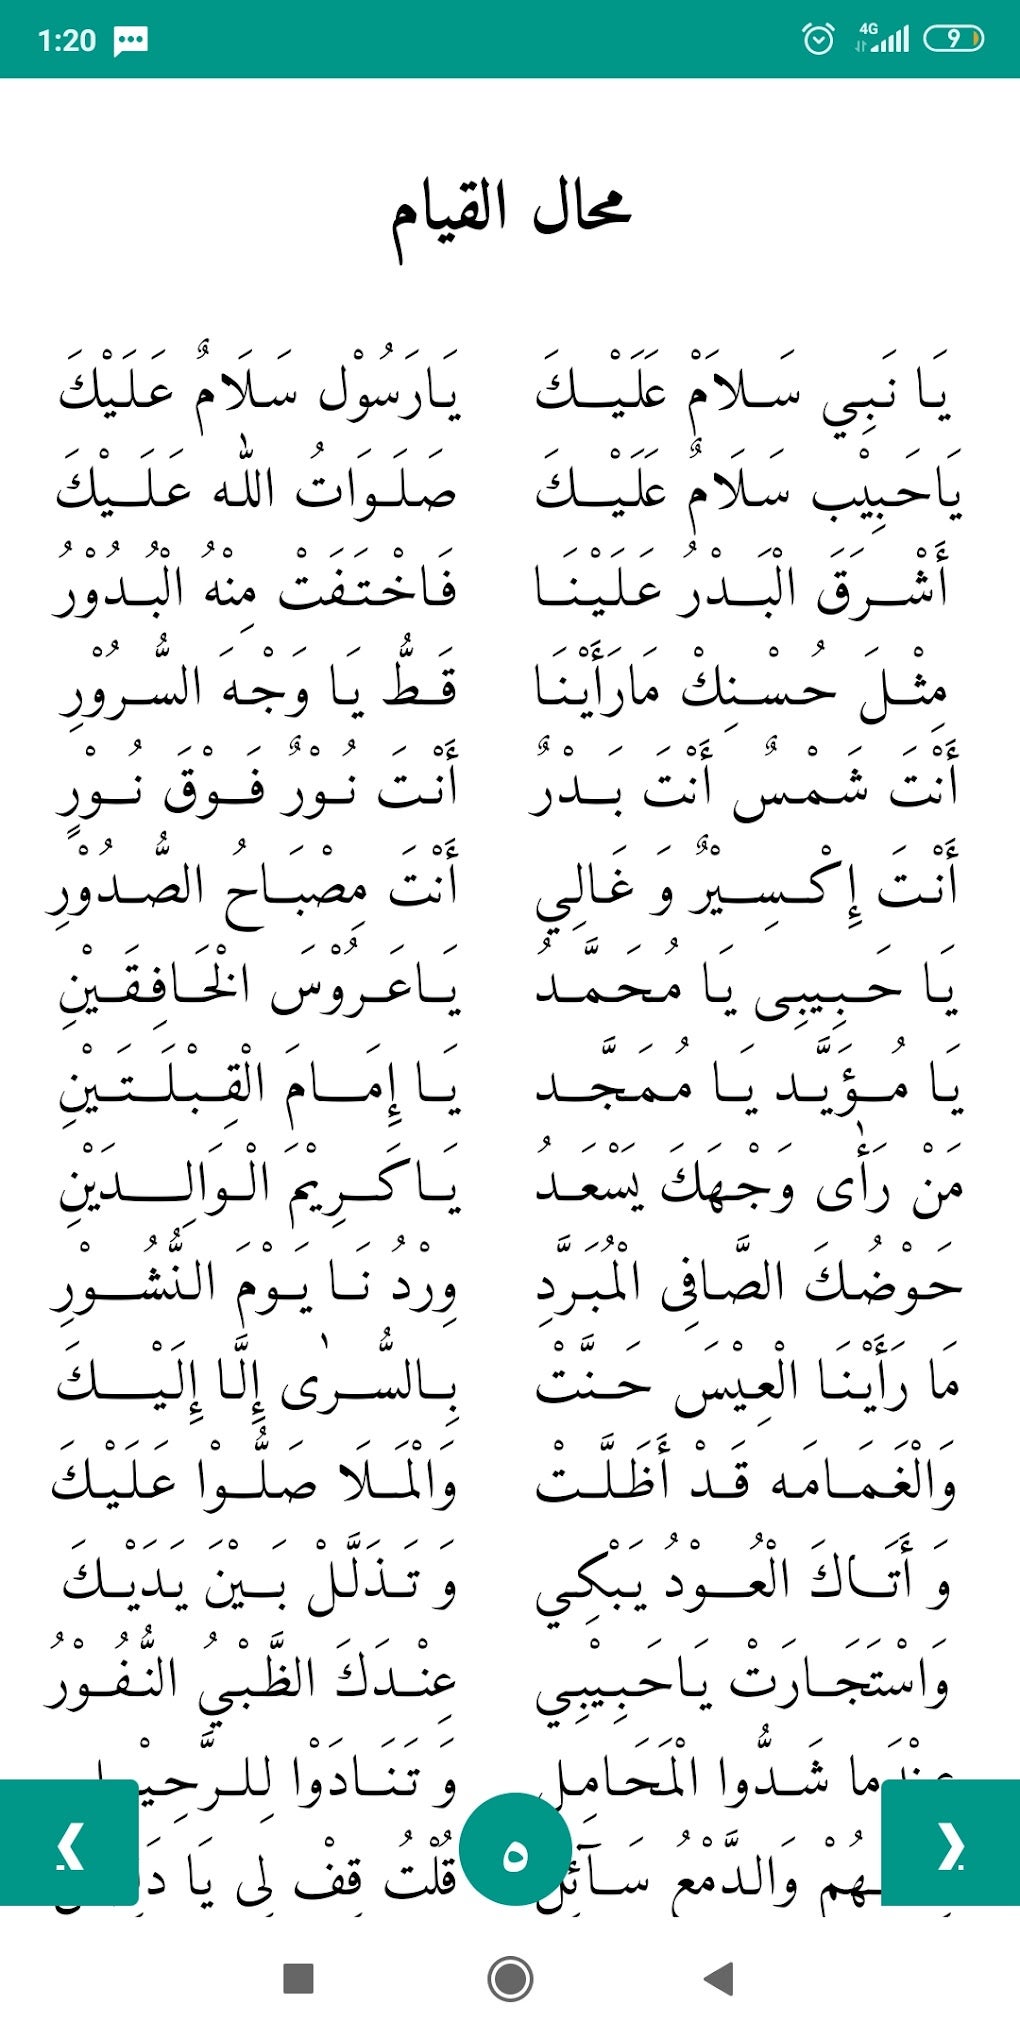 1:20
4G
9
محال القيام
يَا نَبِي سَـلاَمْ عَلَيْـكَ يَارَسُوْل سَلَامٌ عَلَيْكَ
يَاحَبِيْب سَلَامٌ عَلَيْـكَ صَلَـوَاتُ الله عَلَـيْكَ
أَشْـرَقَ الْبَـدْرُ عَلَيْنَـا فَاخْتَفَتْ مِنْهُ الْبُـدُوْرُ
مِثْـلَ حُسْـنِكْ مَارَأَيْنَا قَـطُّ يَا وَجْـهَ السُّـرُوْرِ
أَنْتَ شَمْـسٌ أَنْتَ بَـدْرٌ أَنْتَ نُـوْرٌ فَـوْقَ نُـوْرٍ
أَنْتَ إِكْـسِـيْرٌ وَ غَالِي أَنْتَ مِصْبَـاحُ الصُّـدُوْرِ
يَا حَـبِيبِى يَا مُحَمَّـدُ يَـاعَـرُوْسَ الْخَـافِقَـيْنِ
يَا مُـؤَيَّـد يَـا مُمَجَّـد يَـا إِمَـامَ الْقِـبْلَـتَـيْنِ
مَنْ رَأٰى وَجْهَكَ يَسْعَـدُ يَـاكَـرِيْمَ الْـوَالِـدَيْنِ
حَوْضُكَ الصَّافِى الْمُبَرَّدِ وِرْدُ نَـا يَـوْمَ النُّشُـوْرِ
مَا رَأَيْنَـا الْعِيْسَ حَـنَّتْ بِـالسُّـرٰى إِلَّا إِلَيْـكَ
وَالْغَمَـامَه قَـدْ أَظَلَّـتْ وَالْمَـلَا صَلُّـوْا عَلَيْـكَ
وَ أَتَـاكَ الْعُـوْدُ يَبْكِي وَ تَـذَلَّلْ بَـيْنَ يَدَيْـكَ
وَاسْتَجَـارَتْ يَـاحَبِيْبِي عِنْـدَكَ الظَّبْيُ النُّفُـوْرُ
عِنْدَما شَـدُّوا الْمَحَامِـل وَ تَنَـادَوْا لِلـرَّحِيْـل
ـهُمْ وَالدَّمْعُ سَـآئِلْ قُلْتُ قِفْ لِى يَا
٥